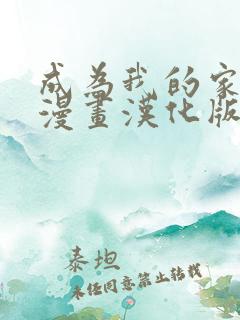 成為我的家
漫畫漢化版
泰坦
未经同意禁止转载